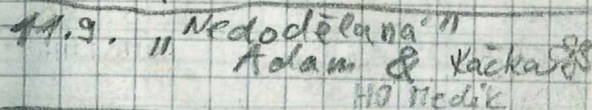 11.9. „Nedodělaná"
Adam & Kačka
HO Medik